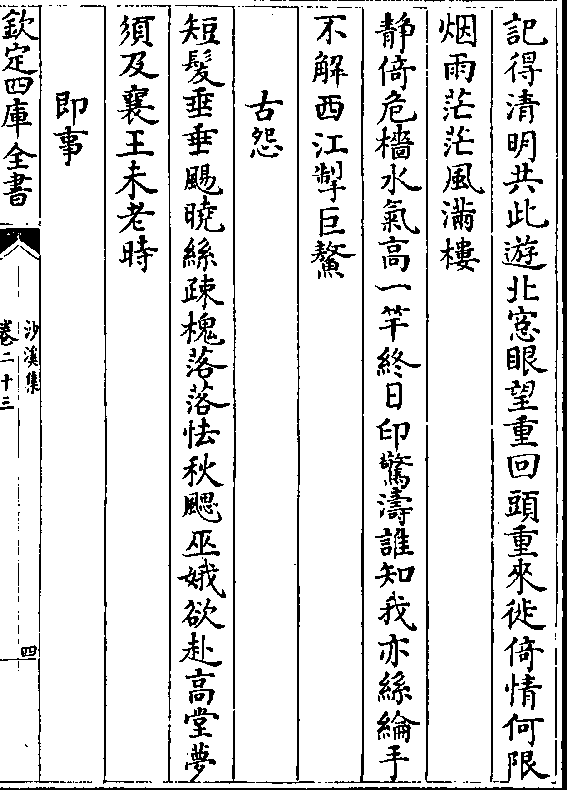 記得清明共此遊北窓眼望重回頭重來徙倚情何限
烟雨茫茫風滿樓
靜倚危檣水氣高一竿終日印驚濤誰知我亦絲綸手
不解西江掣巨鰲
古怨
短髮垂垂颺曉絲疎槐落落怯秋颸巫娥欲赴高堂夢
須及襄王未老時
即事
欽定四庫全書
沙溪集
卷二十三
四